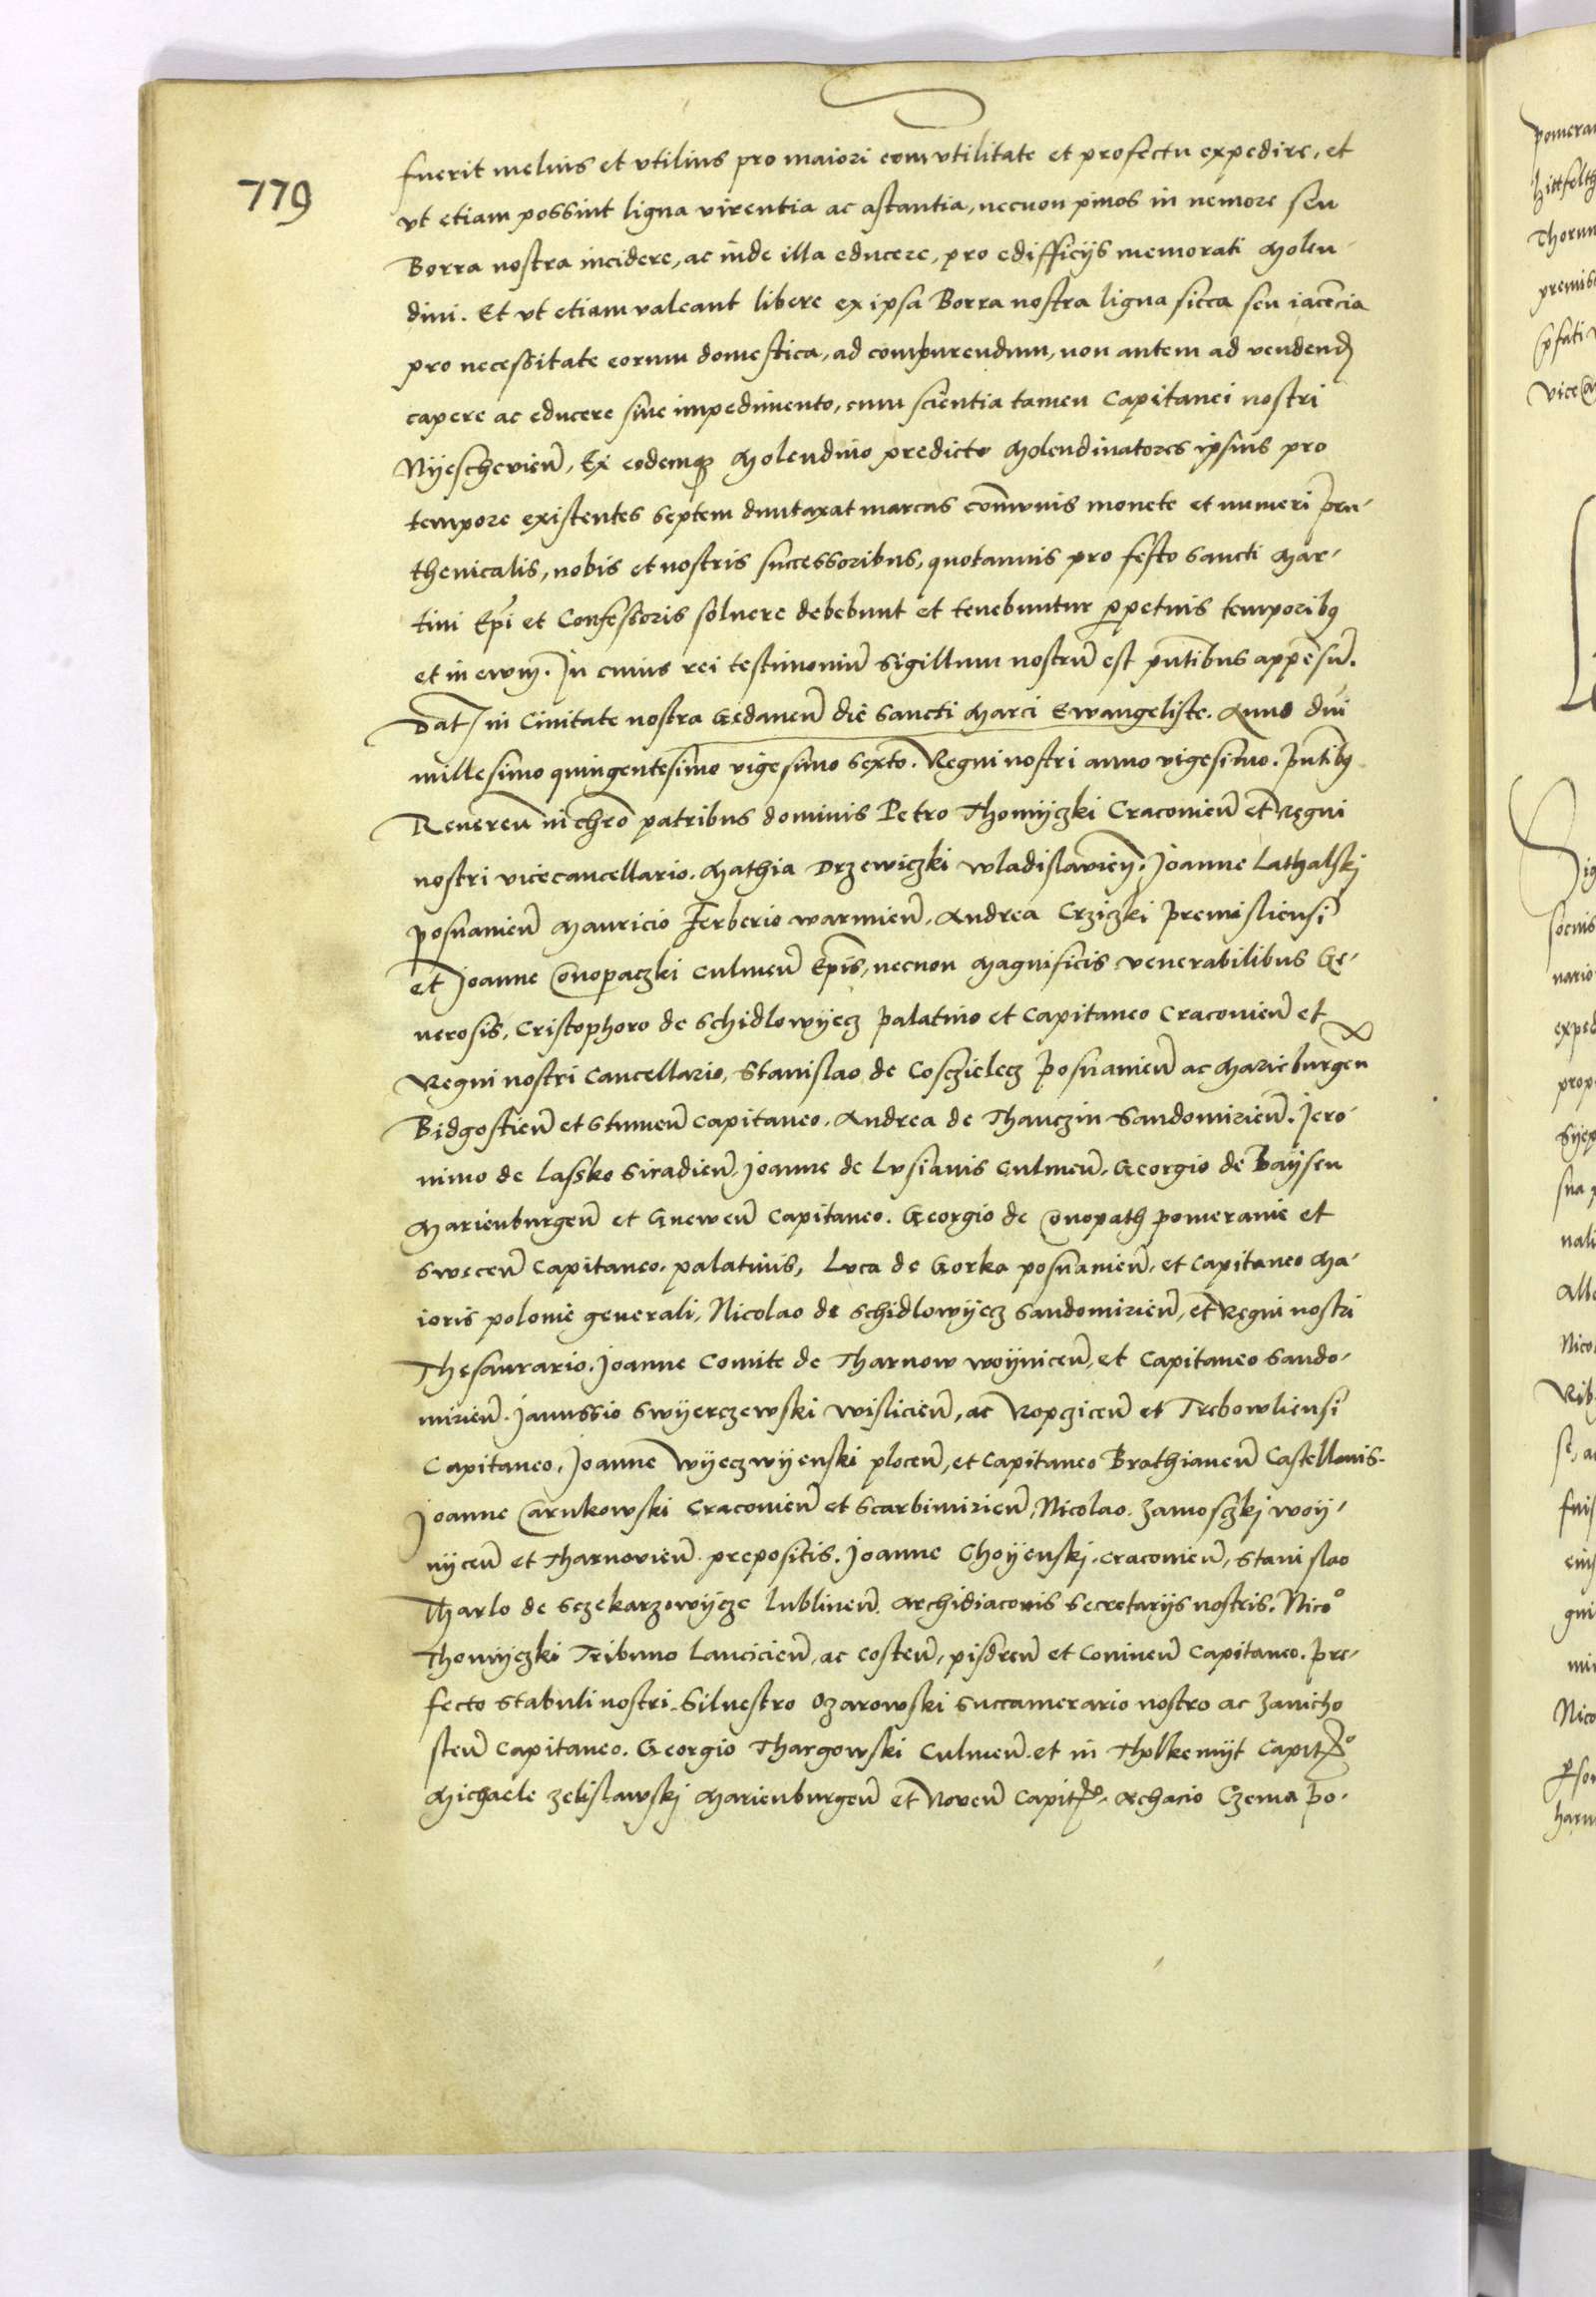 779
fuerit melius et vtilius pro maiori eorum vtilitate et profectu expedire, et
vt etiam possint ligna virentia ac astantia, necnon pinos in nemore seu
Borra nostra incidere, ac inde illa educere, pro edifficijs memorati Molen-
dini. Et vt etiam valeant libere ex ipsa Borra nostra ligna sicca seu iacēcia
pro necessitate eorum domestica, ad comburendum, non autem ad vendend
capere ac educere sine impedimento, cum scientia tamen Capitanei nostri
Nyeschevieñ, Ex eodemq3 Molendino predicto Molendinatores ipsius pro
tempore existentes septem duntaxat marcas cōmunis monete et numeri pru-
thenicalis, nobis et nostris successoribus, quotannis pro festo sancti Mar-
tini Ep̄i et Confessoris soluere debebunt et tenebuntur ꝑpetuis temporib9
et in ewū. In cuius rei testimoniū sigillum nostrū est pn̄tibus appēsū.
Dat in Ciuitate nostra Gedaneñ die sancti Marci Ewangeliste. Anno dn̄i
millesimo quingentesimo vigesimo sexto. Regni nostri anno vigesimo. Pn̄tib9
Revereñ in chr̄o patribus dominis Petro Thomyczki Cracovieñ et Regni
nostri vicecancellario. Mathia Drzewiczki wladislavieñ. Joanne Lathalskj
posnanieñ Mauricio Ferberio warmieñ. Andrea Crziczki premisliensi
et Joanne Conopaczki culmeñ Ep̄is, necnon Magnificis venerabilibus Ge-
nerosis, Cristophoro de Schidlowyecz palatino et Capitaneo Cracovieñ et
Regni nostri Cancellario, Stanislao de Cosczielecz posnanieñ ac Marieburgeñ
Bidgostieñ et Stumeñ Capitaneo. Andrea de Thanczin Sandomirieñ. Jero-
nimo de Lassko Siradieñ. Joanne de Lusianis Culmeñ. Georgio de Baysen
Marienburgeñ et Gneweñ Capitaneo. Georgio de Conopath pomeranie et
sweceñ Capitaneo. palatinis, Luca de Gorka posnanieñ. et Capitaneo Ma-
ioris polonie generali, Nicolao de Schidlowyecz Sandomirieñ, et Regni nostri
Thesaurario. Joanne Comite de Tharnow woyniceñ, et Capitaneo Sando-
mirieñ. Janussio Swyerczewski wislicieñ, ac Ropcziceñ et Trebowliensi
Capitaneo, Joanne Wyeczwyenski ploceñ, et Capitaneo Brathianeñ Castellanis.
Joanne Carnkowski Cracovieñ et Scarbimirieñ, Nicolao Zamosczkj woy-
nyceñ et Tharnovieñ prepositis. Joanne Choyenskj. Cracovieñ, Stanislao
Tharlo de Sczekarzowycze Lublineñ Archidiaconis Secretarijs nostris. Nico°
Thomyczki Tribuno Lancicieñ, ac costeñ, pisdreñ et Conineñ Capitaneo. pre-
fecto stabuli nostri. Siluestro Ozarowski Succamerario nostro ac Zawicho
steñ Capitaneo. Georgio Thargowski Culmeñ. et in Tholkemyt Capit°
Michaele Zelislawskj Marienburgeñ et Noveñ Capit°. Achacio Czema po-